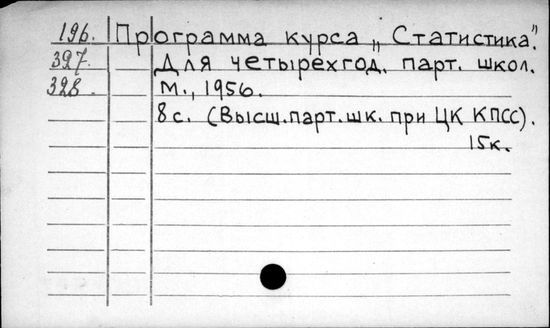 196. Программа курса „Статистика".
397. Для четырехгод. парт. школ.
328. М., 1956.
8 с. (Высш.парт.шк. при ЦК КПСС).
15к.